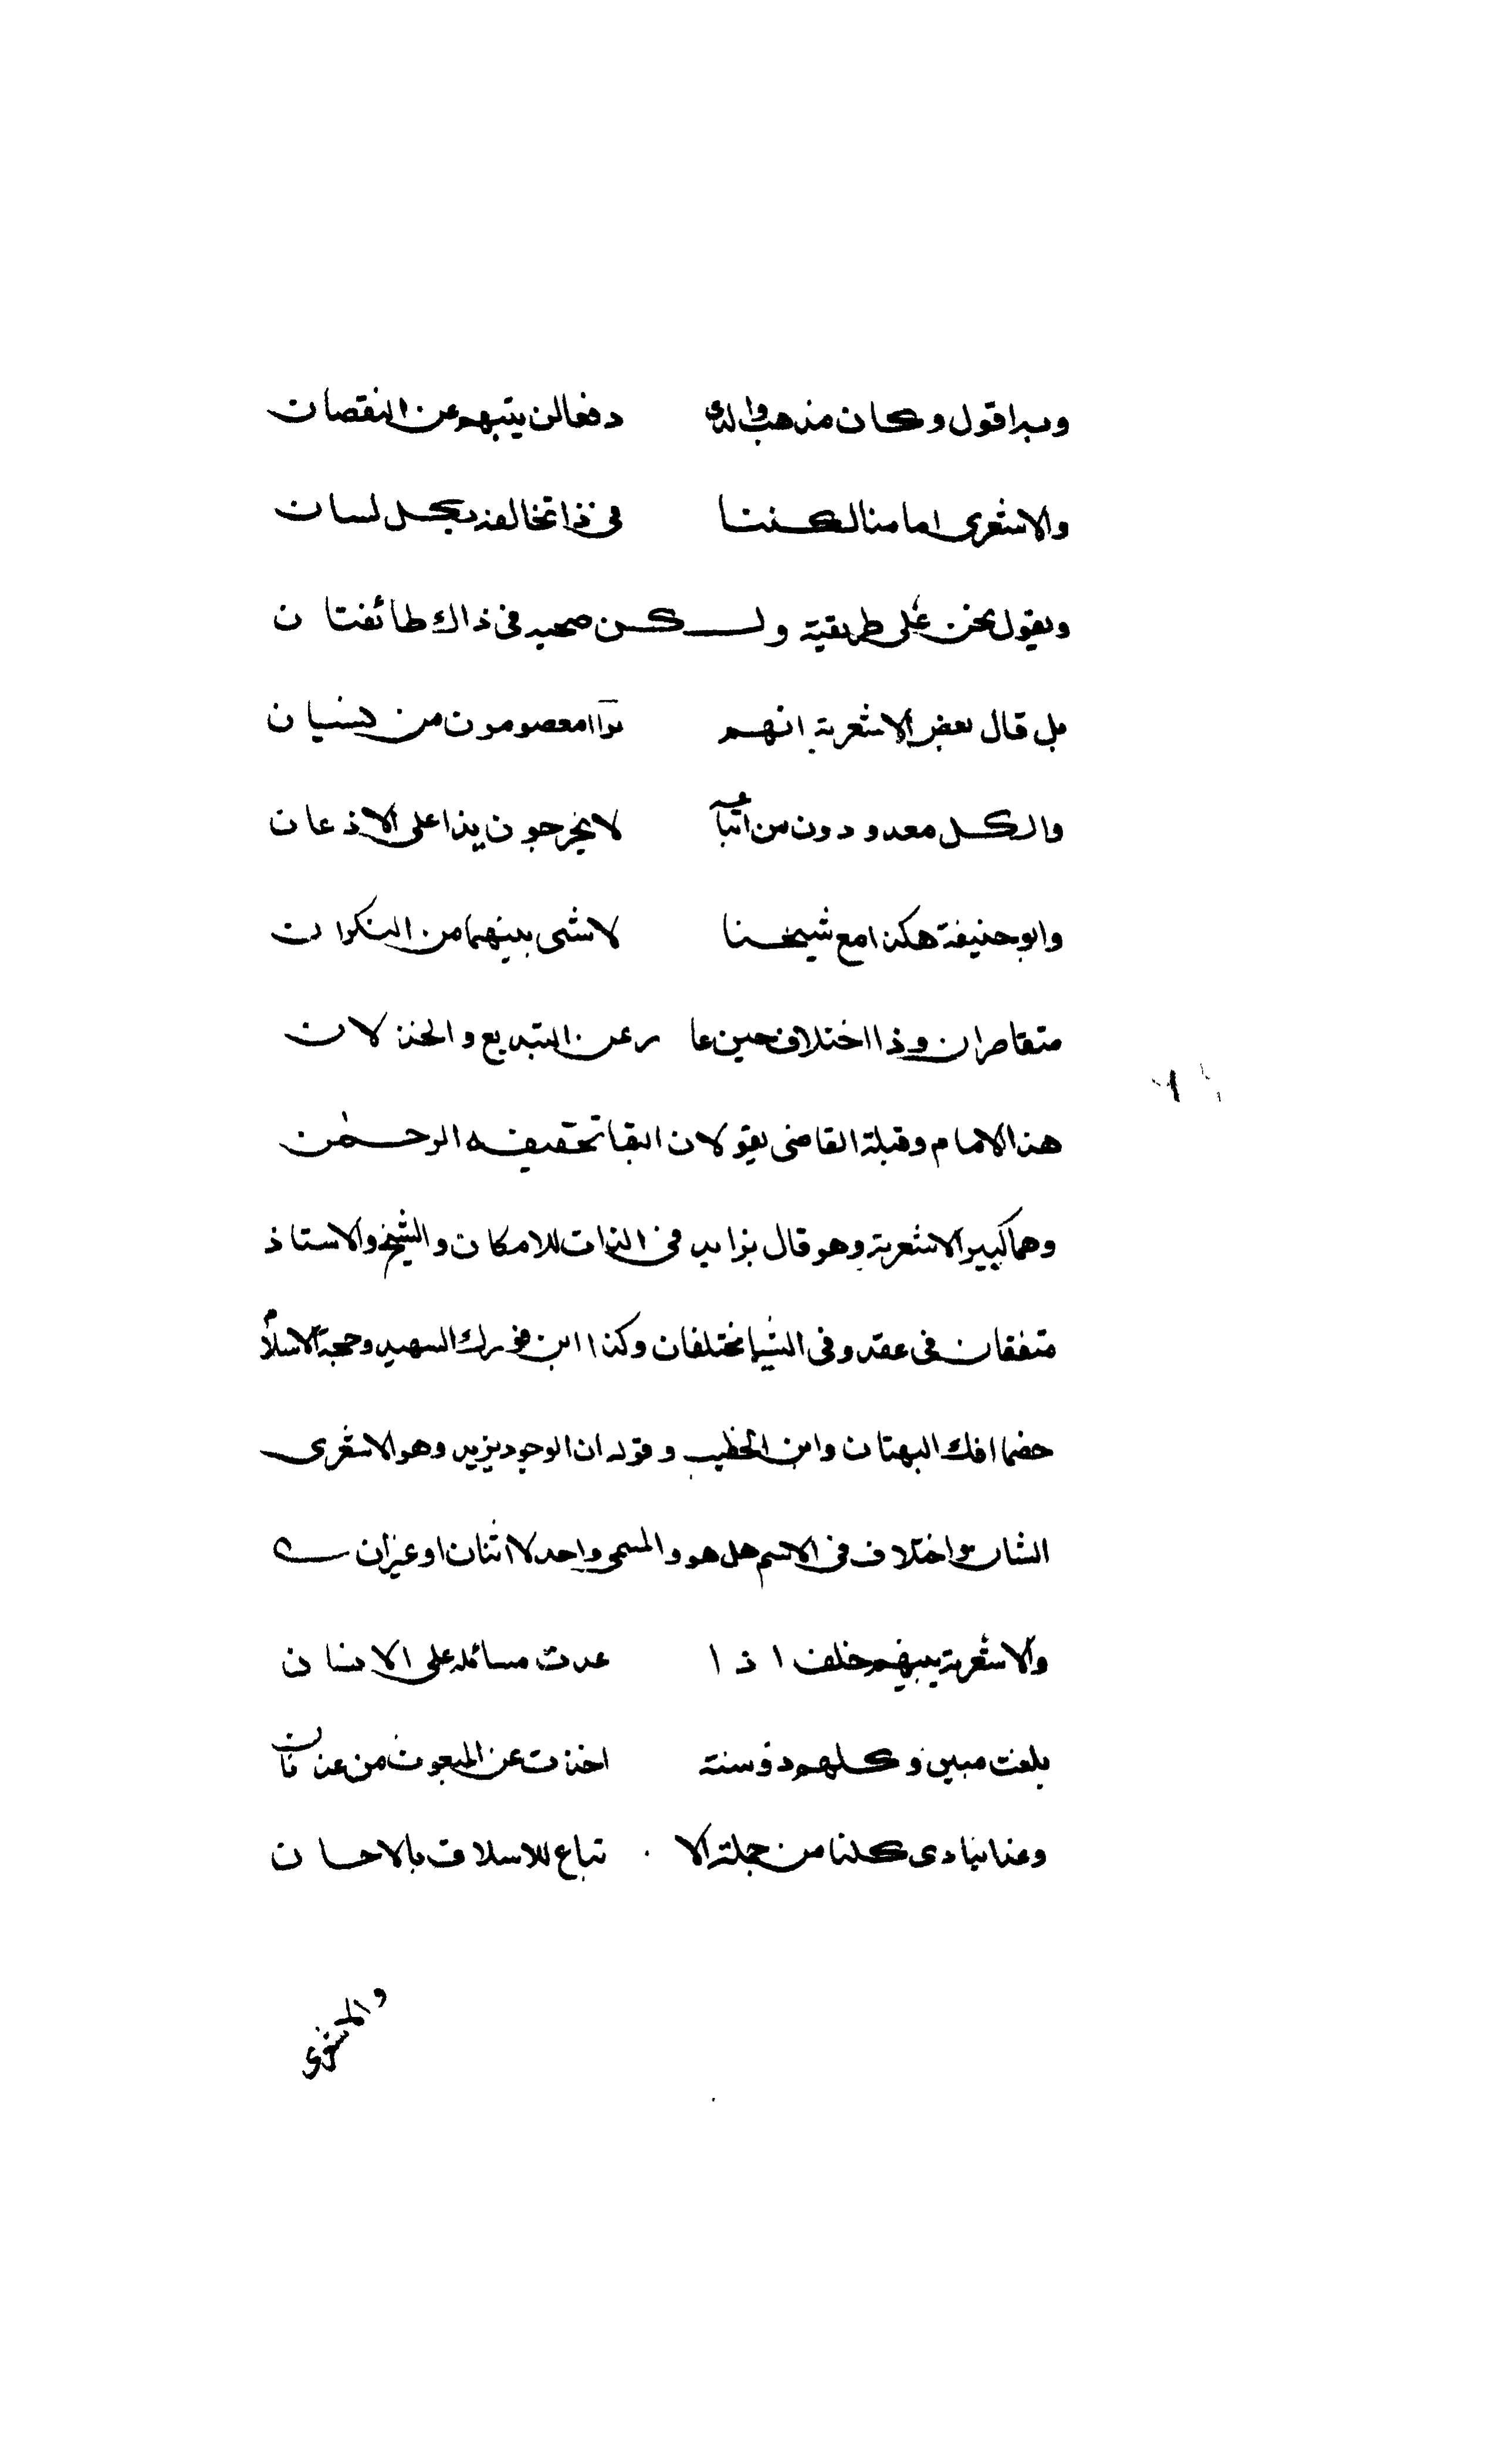 وبه اقول وكان مذهب والدى دفعا لن يتبهم عن النقصان
والاشعرى امامنا لكننا فى ذا تخالفه بكل لسان
ويقول نحن على طريقته ولكن صحبه فى ذاك طائفتان
بل قال بعض الاشعرية انهم برآا معصومون من نسيان
والكل معدودون من اتباعه لا يخرجون بذا على الاذعان
وابو حنيفة هكذا مع شيخنا لا شى بينهما من النكران
متقاصران وذا اختلاف هين عا رعن التبديع والخذلان
هذا الامام وقبله القاضى يقولان البقا تحقيقه الرحمن
وهما كبير الاشعرية وهو قال بزايد فى الذات للامكان والشيخ والاستاذ
متفقان فى عقد وفى اشيا مختلفان وكذا ابن فورك الشهيد وحجة الاسلام
خصما افك البهتان وابن الخطيب وقوله ان الوجود يزيد وهو الاشعرى
الثان واختلاف فى الاسم هل هو والمسمى واحد لا اثنان او غيران
والاشعرية بينهم خلف اذا عدت مسائله على الانسان
بلغت مئين وكلهم ذو سنة اخذت عن المبعوث من عدنان
وغدا ينادى كلنا من جملة الا تباع للاسلاف بالاحسان